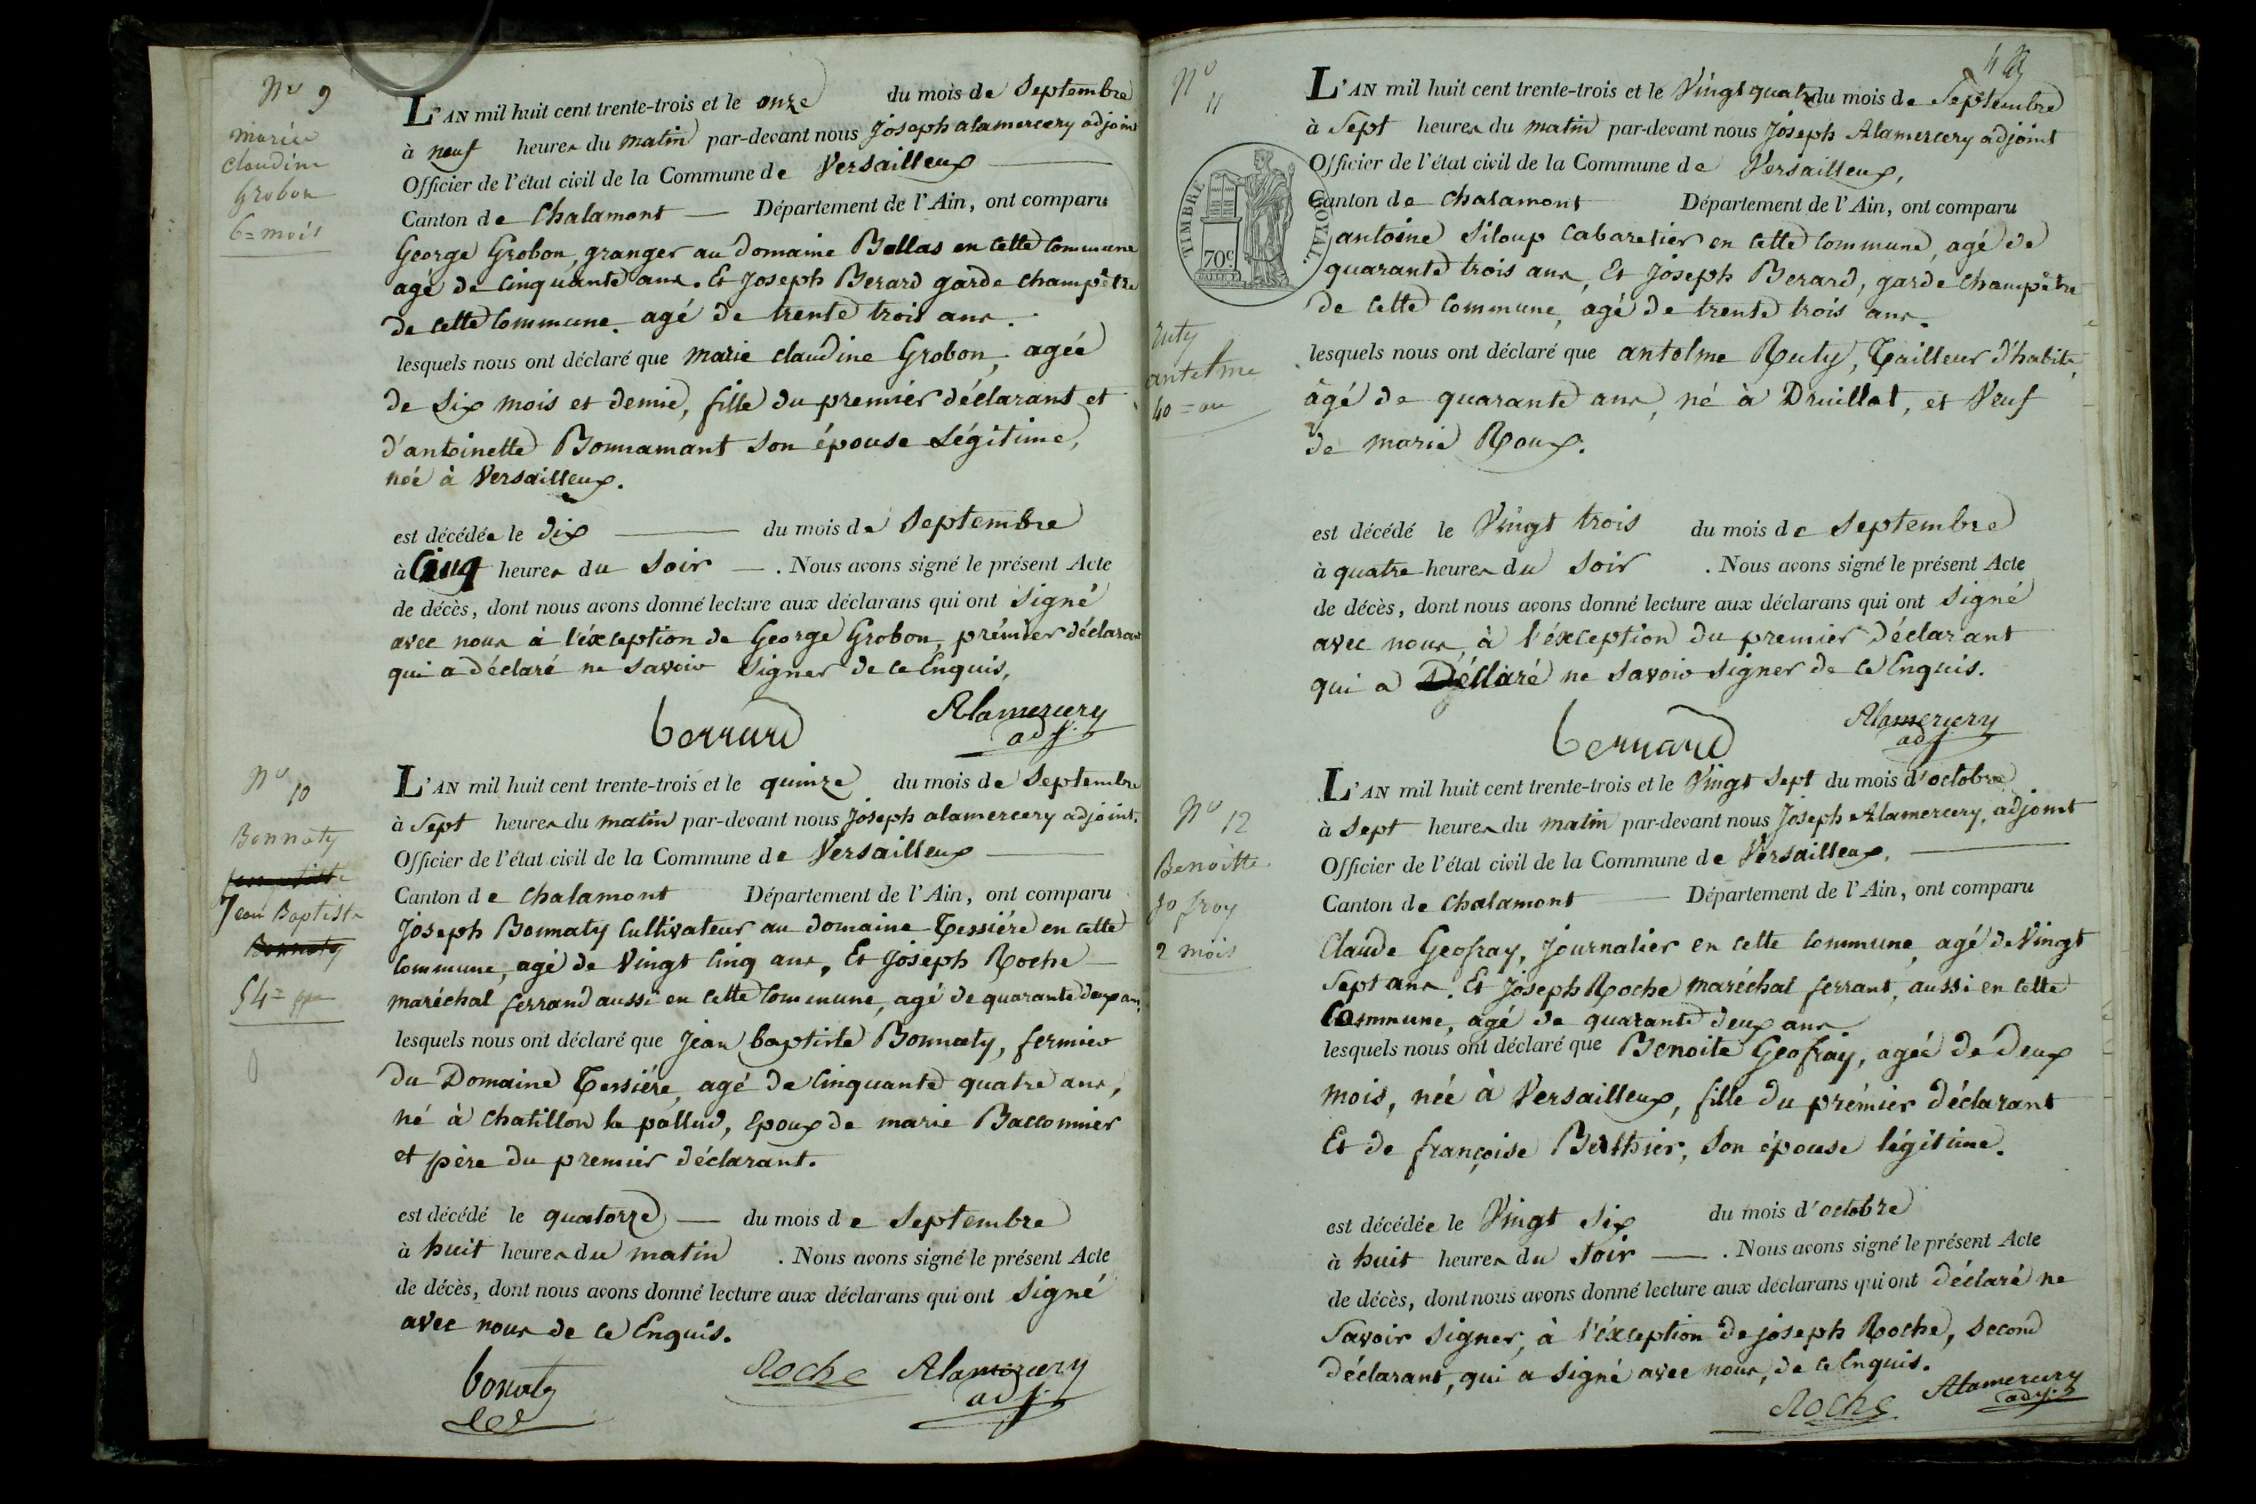 No 9
marie
claudine
Grobon
6= mois
L'AN mil huit cent trente-trois et le onze du mois de Septembre
à neuf heures du matin par-devant nous Joseph alamercery adjoint
Officier de l'état civil de la Commune de Versailleux
Canton de Chalamont Département de l'Ain, ont comparu
George Grobon, granger au domaine Bellas en cette Commune
agé de Cinquante ans. Et Joseph Berard garde champêtre
de cette Commune. agé de trente trois ans.
lesquels nous ont déclaré que marie claudine Grobon, agée
de Six mois et demie, fille du premier déclarant et
d'antoinette Bonnamant son épouse Légitime,
née à Versailleux.
est décédée le dix du mois de Septembre
à Cinq heures du Soir. Nous avons signé le présent Acte
de décès, dont nous avons donné lecture aux déclarans qui ont Signé
avec nous à l'éxception de George Grobon, prémier déclarant
qui a déclaré ne savoir Signer de ce Enquis,
berrard Alamercery
adj.
No 10
Bonnaty
Jean Baptiste
Bonnaty
54=
L'AN mil huit cent trente-trois et le quinze du mois de Septembre
à Sept heures du matin par-devant nous Joseph alamercery adjoint.
Officier de l'état civil de la Commune de Versailleux
Canton de Chalamont Département de l'Ain, ont comparu
Joseph Bonnaty Cultivateur au domaine Tessiére en cette
Commune, agé de Vingt Cinq ans, Et Joseph Roche
maréchal ferrand aussi en cette Commune, agé de quarante deux ans,
lesquels nous ont déclaré que Jean baptiste Bonnaty, fermier
du Domaine Tessiére, agé de Cinquante quatre ans,
né à Chatillon la pallud, Epoux de marie Bacconnier
et père du premier déclarant.
est décédé le quatorze du mois de Septembre
à huit heures du matin. Nous avons signé le présent Acte
de décès, dont nous avons donné lecture aux déclarans qui ont Signé
avec nous de ce Enquis.
bonaty Roche Alamercery
adj.
No
11
TIMBRE ROYAL.
70c
ruty
antelme
40=
L'AN mil huit cent trente-trois et le Vingt quatre du mois de Septembre
à Sept heures du matin par-devant nous Joseph Alamercery adjoint
Officier de l'état civil de la Commune de Versailleux,
Canton de Chalamont Département de l'Ain, ont comparu
antoine Siloup Cabaretier en cette Commune, agé de
quarante trois ans, Et Joseph Berard, garde Champêtre
de cette Commune, agé de trente trois ans.
lesquels nous ont déclaré que antelme Ruty, Tailleur d'habits,
âgé de quarante ans, né à Druillat, et Veuf
de marie Roux.
est décédé le Vingt trois du mois de Septembre
à quatre heures du Soir. Nous avons signé le présent Acte
de décès, dont nous avons donné lecture aux déclarans qui ont Signé
avec nous, à l'éxception du premier déclarant
qui a Déclaré ne savoir signer de ce Enquis.
bernard Alamercery
adj.
No 12
Benoitte
Jofroy
2 mois
L'AN mil huit cent trente-trois et le Vingt Sept du mois d'octobre
à Sept heures du matin par-devant nous Joseph Alamercery, adjoint
Officier de l'état civil de la Commune de Versailleux.
Canton de Chalamont Département de l'Ain, ont comparu
Claude Geofray, Journalier en cette Commune, agé de Vingt
Sept ans. Et Joseph Roche maréchal ferrant, aussi en cette
Commune, agé de quarante deux ans.
lesquels nous ont déclaré que Benoite Geofray, agée de Deux
mois, née à Versailleux, fille du prémier déclarant
Et de françoise Berthier, Son épouse légitime.
est décédée le Vingt Six du mois d'octobre
à huit heures du Soir. Nous avons signé le présent Acte
de décès, dont nous avons donné lecture aux déclarans qui ont Déclaré ne
Savoir Signer, à l'éxception de joseph Roche, Second
déclarant, qui a Signé avec nous, de ce Enquis.
Roche Alamercery
adj.